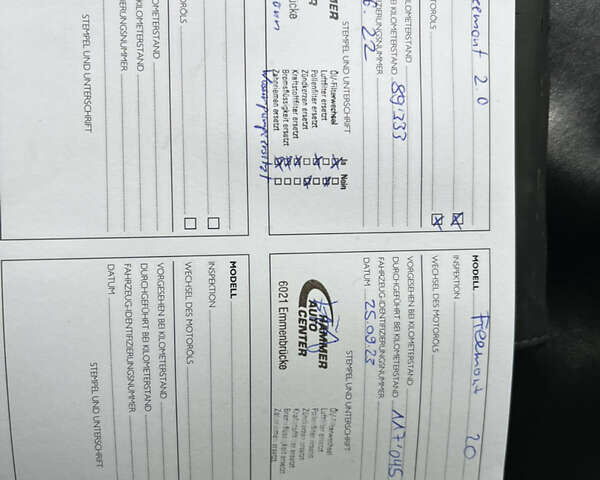 eemont 2.0
22
FIZIERUNGSNUMMER
BEI KILOMETERSTAND 89'333
MOTORÖLS
STEMPEL UND UNTERSCHRIFT
MER
brücke
Ja Nein
Öl-/Filterwechsel
Luftfilter ersetzt
Pollenfilter ersetzt
Zündkerzen ersetzt
Kraftstofffilter ersetzt
Bremsflüssigkeit ersetzt
Zahnriemen ersetzt
Wasserpumpe ersetzt
MODELL Freemont 20
INSPEKTION
WECHSEL DES MOTORÖLS
VORGESEHEN BEI KILOMETERSTAND
DURCHGEFÜHRT BEI KILOMETERSTAND 117'045
FAHRZEUG-IDENTIFIZIERUNGSNUMMER
DATUM 25.09.23
STEMPEL UND UNTERSCHRIFT
HAMMER
AUTO
CENTER
6021 Emmenbrücke
Öl-/Filterwechsel
Luftfilter ersetzt
Pollenfilter ersetzt
Zündkerzen ersetzt
Kraftstofffilter ersetzt
Bremsflüssigkeit ersetzt
Zahnriemen ersetzt
MOTORÖLS
KILOMETERSTAND
KILOMETERSTAND
ZIERUNGSNUMMER
STEMPEL UND UNTERSCHRIFT
MODELL
INSPEKTION
WECHSEL DES MOTORÖLS
VORGESEHEN BEI KILOMETERSTAND
DURCHGEFÜHRT BEI KILOMETERSTAND
FAHRZEUG-IDENTIFIZIERUNGSNUMMER
DATUM
STEMPEL UND UNTERSCHRIFT